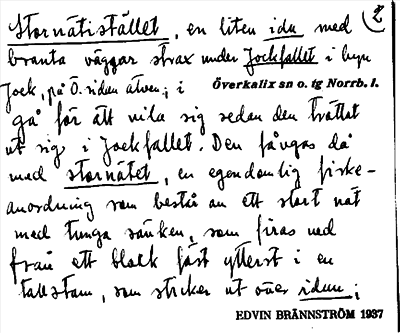 Stornätistället, en liten ida med 2
branta väggar strax under Jockfallet i byn
Jock, på Ö. sidan älven; i
Överkalix sn o. tg Norrb. l.
gå för att vila sig sedan den tröttat
ut sig i Jockfallet. Den fångas då
med stornätet, en egendomlig fiske-
anordning som består av ett stort nät
med tunga sänken, som firas ned
från ett block fäst ytterst i en
tallstam, som sticker ut över idun;
EDVIN BRÄNNSTRÖM 1937